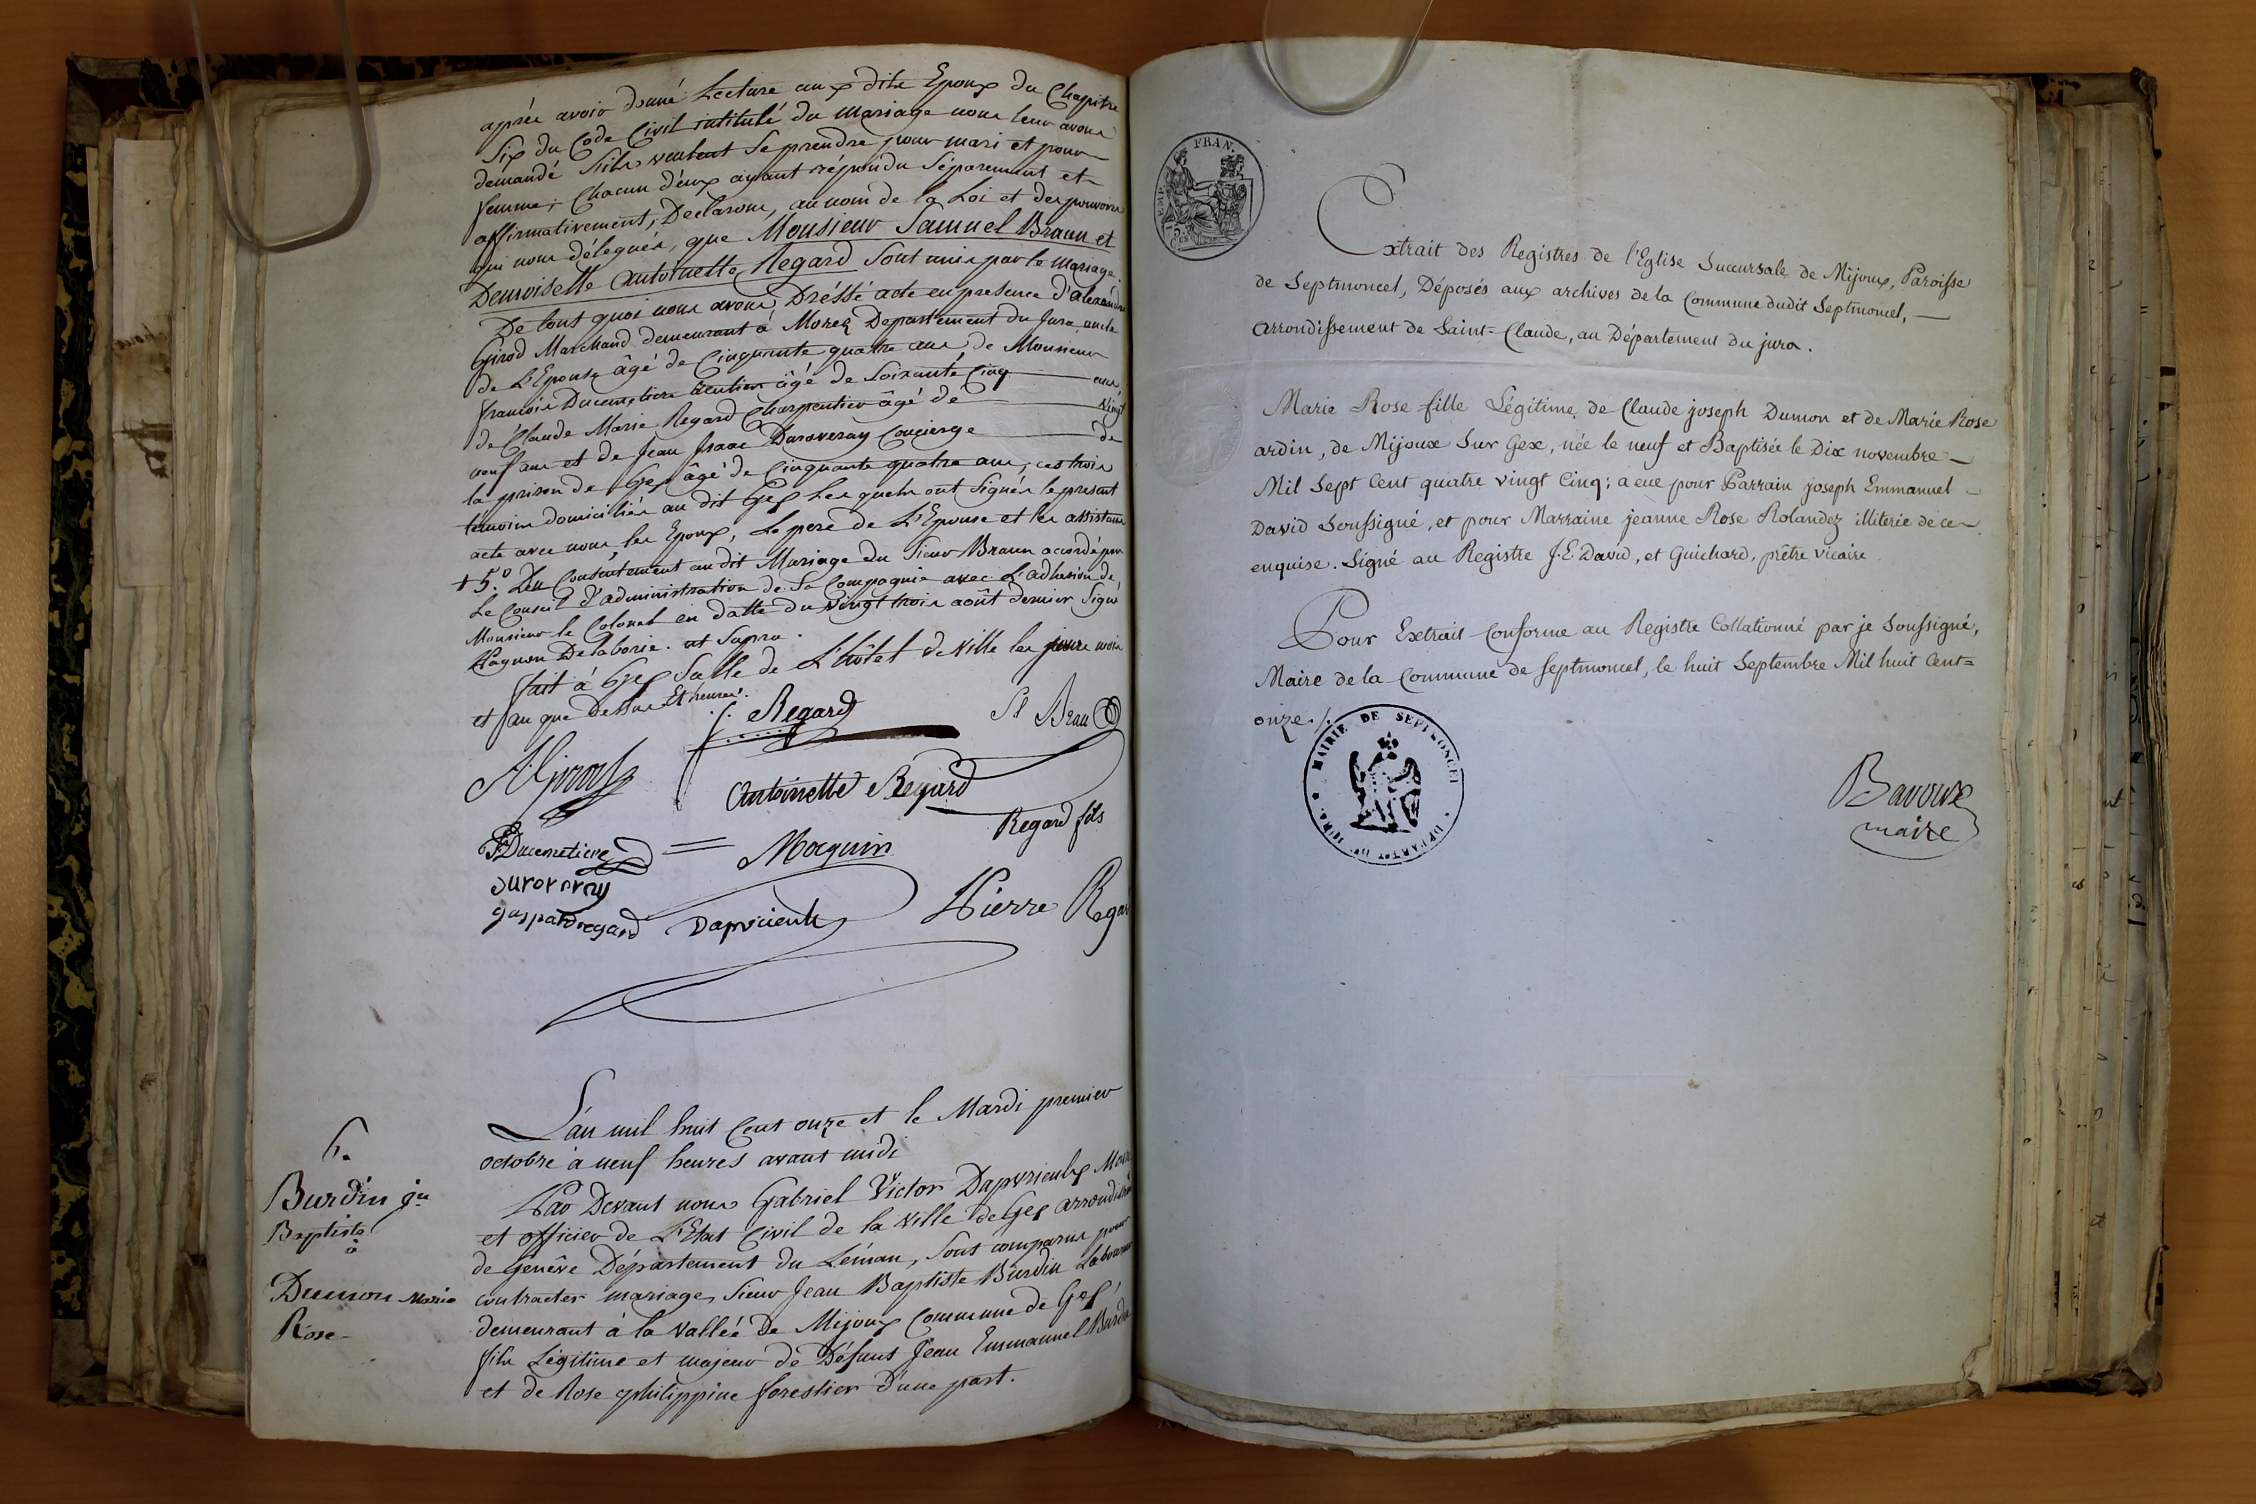 après avoir donné Lecture aux dits Epoux du Chapitre
Six du Code Civil intitulé du Mariage nous leur avons
demandé S'ils veulent Se prendre pour mari et pour
femme; Chacun d'eux ayant répondu Séparement et
affirmativement, Declarons, au nom de la Loi et des pouvoirs
qui nous délegués, que Monsieur Samuel Braun et
Demoiselle Antoinette Regard Sont unis par le Mariage.
De tout quoi nous avons Dréssé acte en presence d'alexandre
Girod Marchand demeurant à Morez Departement du Jura, oncle
de L'Epouse âgé de Cinquante quatre ans, de Monsieur
françois Ducemetiere Rentier âgé de Soixante Cinq ans
de Claude Marie Regard Charpentier âgé de Vingt
neuf ans et de Jean Isaac Duroveray Concierge de
la prison de Gex âgé de Cinquante quatre ans, ces trois
témoins domiciliés au dit Gex Les quels ont Signés le présent
acte avec nous, les Epoux, Le pere de L'Epouse et les assistans
+ 5.° Du Consentement au dit Mariage du Sieur Braun accordé par
Le Conseil d'administration de Sa Compagnie avec L'adhésion de
Monsieur le Colonel en datte du vingt trois août dernier Signé
Ragnon Delaborie. ut Supra.
fait à Gex Salle de L'hôtel de Ville les jours mois
et an que dessus Et heures.
f. Regard
Sl Braun
A Girod
Antoinette Regard
Regard fils
Ducemetiere
Mocquin
Duroveray
gaspard regard
Dapvrieulx
Pierre Regar
L'an mil huit Cent onze et le Mardi premier
octobre à neuf heures avant midi
6.
Burdin jn
Baptiste
à
Dumon Marie
Rose
Par Devant nous Gabriel Victor Dapvrieulx Maire
et officier de L'Etat Civil de la Ville de Gex arrondissem
de Genêve Département du Léman, Sont comparus pour
contracter mariage, Sieur Jean Baptiste Burdin Laboureur
demeurant à la Vallée de Mijoux Commune de Gex
fils Légitime et majeur de Défunt Jean Emmanuel Burdin
et de Rose philippine forestier d'une part.
EMP. FRAN.
75 Ces
Extrait des Registres de l'Eglise Succursale de Mijoux, Paroisse
de Septmoncel, Déposés aux archives de la Commune dudit Septmoncel,
Arrondissement de Saint=Claude, au Département du jura.
Marie Rose fille Légitime de Claude joseph Dumon et de Marie Rose
ardin, de Mijoux Sur Gex, née le neuf et Baptisée le Dix novembre
Mil Sept Cent quatre vingt Cinq; a eue pour Parrain joseph Emmanuel
David Soussigné, et pour Marraine jeanne Rose Rolandez illiterie de ce
enquise. Signé au Registre J. E. David, et Guichard, prêtre vicaire
Pour Extrait Conforme au Registre Collationné par je Soussigné,
Maire de la Commune de Septmoncel, le huit Septembre Mil huit Cent=
onze./.
MAIRIE DE SEPTMONCEL
DEPARTt DU JURA
Bavoux
maire